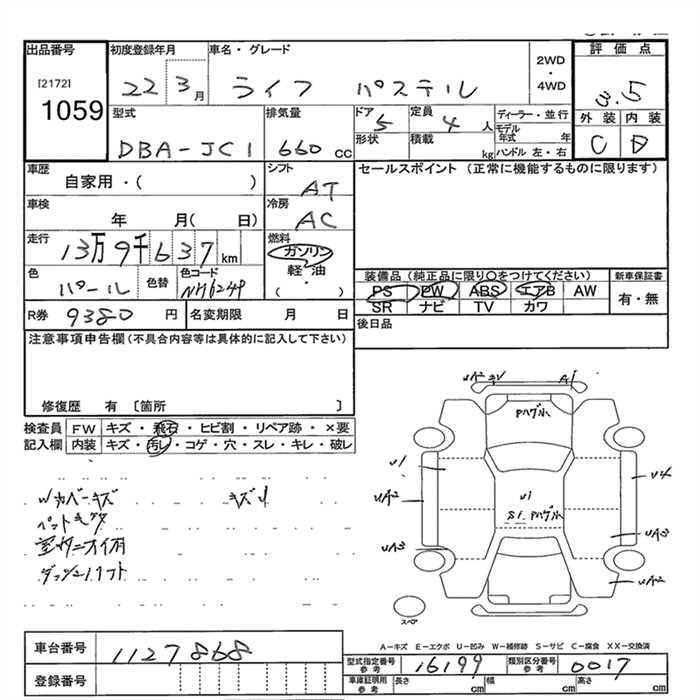 出品番号
[2172]
1059
初度登録年月
22 3月
車名・グレード
ライフ パステル
2WD
・
4WD
評価点
3.5
外装 内装
C D
型式
DBA-JC1
排気量
660 cc
ドア
5
定員
4 人
ディーラー・並行
モデル年式 年
形状
積載
kg
ハンドル 左・右
車歴
自家用・( )
シフト
AT
セールスポイント (正常に機能するものに限ります)
車検
年 月( 日)
冷房
AC
走行
13万9千637 km
燃料
ガソリン
軽・油
( ・ )
色
パール
色替
色コード
NH624P
装備品 (純正品に限り○をつけてください)
新車保証書
PS PW ABS エアB AW
SR ナビ TV カワ
有・無
R券 9380 円
名変期限 月 日
後日品
注意事項申告欄 (不具合内容等は具体的に記入して下さい)
修復歴 有 〔箇所 〕
検査員 FW キズ・飛石・ヒビ割・リペア跡・×要
記入欄 内装 キズ・汚レ・コゲ・穴・スレ・キレ・破レ
Wカバーキズ
キズU
ペットモヨウ
室内ニオイ有
ダッシュリフト
UA2
A1
Pハゲル
U1
UA2
UA3
U1
S1 Pハゲル
U4
UA3
UA2
スペア
A-キズ E-エクボ U-凹み W-補修跡 S-サビ C-腐食 XX-交換済
車台番号
1127868
登録番号
型式指定番号 参考
16199
類別区分番号 参考
0017
車庫証明用 参考
長さ cm
幅 cm
高さ cm